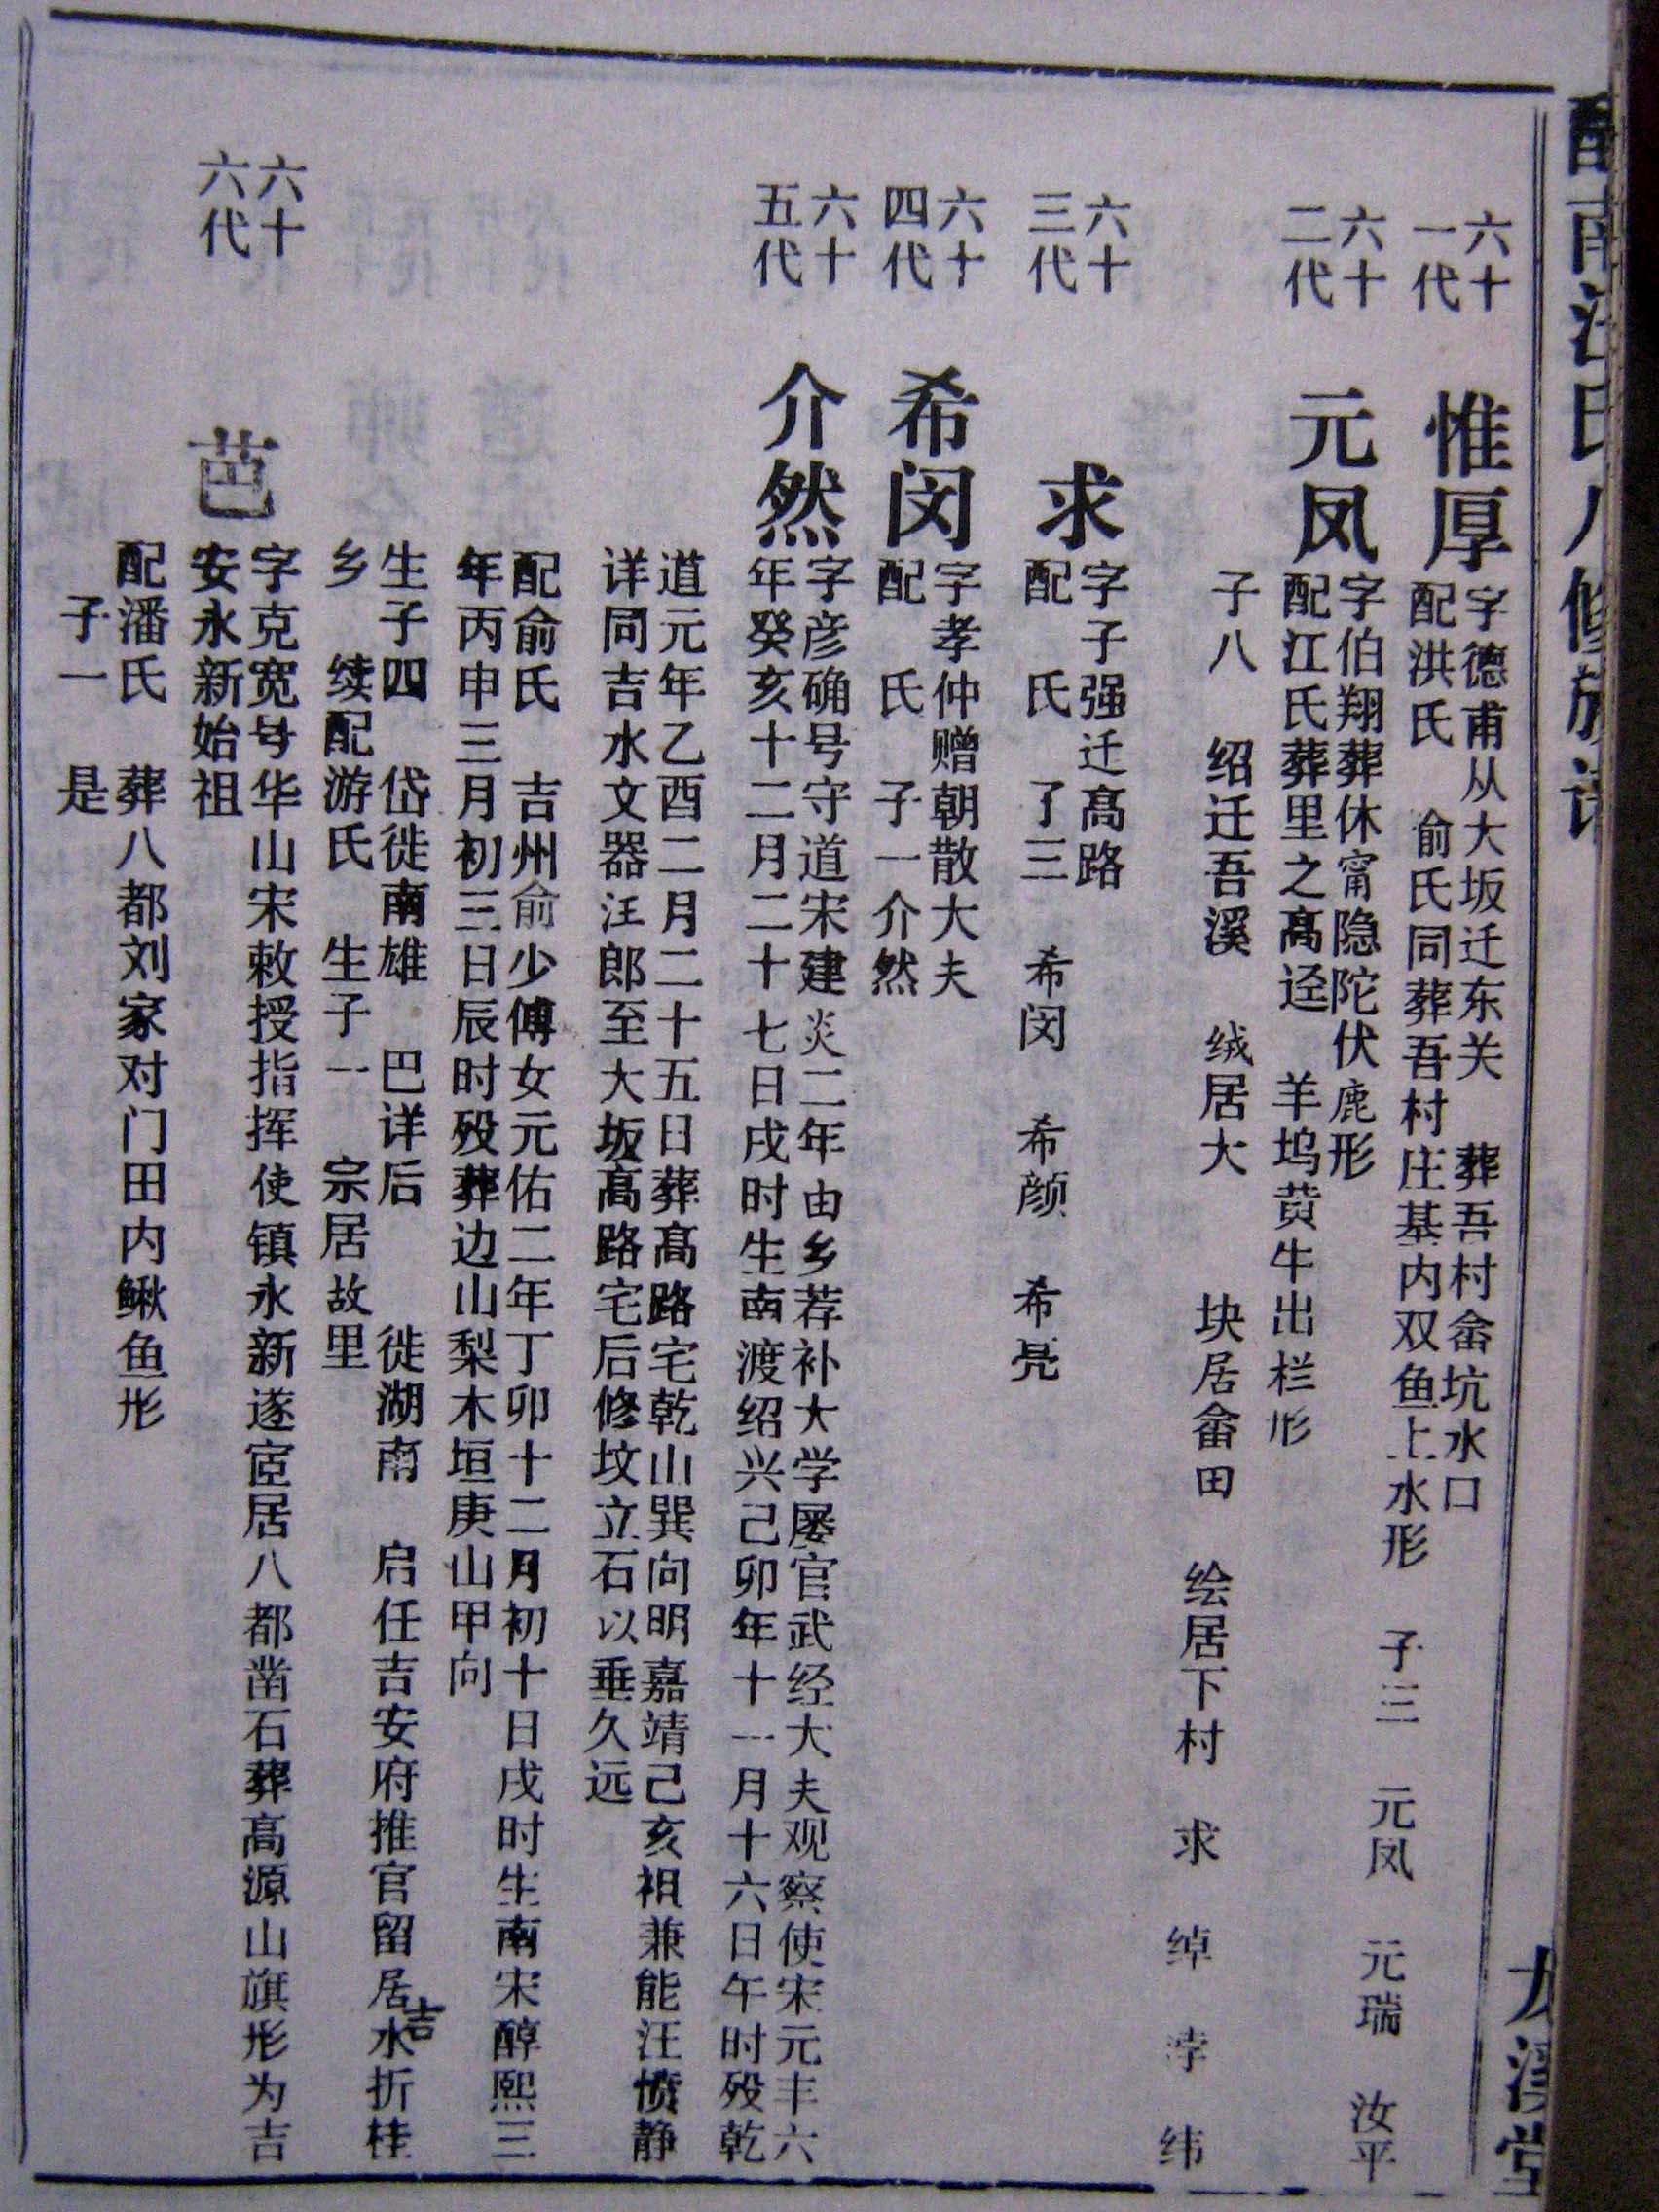 南汪氏八修族
六十一代
惟厚
字德甫从大坂迁东关 葬吾村畲坑水口
配洪氏 俞氏同葬吾村庄基内双鱼上水形 子三 元凤 元瑞 汝平
六十二代
元凤
字伯翔葬休甯隐陀伏鹿形
配江氏葬里之高迳 羊坞黄牛出栏形
子八 绍迁吾溪 绒居大 块居畲田 绘居下村 求 绰 浡 纬
六十三代
求
字子强迁高路
配 氏 了三 希闵 希颜 希亮
六十四代
希闵
字孝仲赠朝散大夫
配 氏 子一介然
六十五代
介然
字彦确号守道宋建炎二年由乡荐补大学屡官武经大夫观察使宋元丰六
年癸亥十二月二十七日戌时生南渡绍兴己卯年十一月十六日午时殁乾
道元年乙酉二月二十五日葬高路宅乾山巽向明嘉靖己亥祖兼能汪愤静
详同吉水文器汪郎至大坂高路宅后修坟立石以垂久远
配俞氏 吉州俞少傅女元佑二年丁卯十二月初十日戌时生南宋醇熙三
年丙申三月初三日辰时殁葬边山梨木垣庚山甲向
生子四 岱徙南雄 巴详后 徙湖南 启任吉安府推官留居吉水折桂
乡 续配游氏 生子一 宗居故里
六十六代
芭
字克宽号华山宋敕授指挥使镇永新遂宦居八都凿石葬高源山旗形为吉
安永新始祖
配潘氏 葬八都刘家对门田内鳅鱼形
子一 是
溪堂